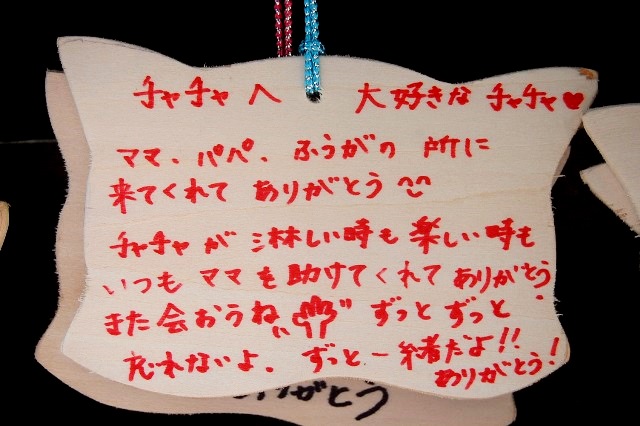 チャチャへ 大好きなチャチャ♥
ママ、パペ、ふうがの所に
来てくれてありがとう
チャチャが淋しい時も楽しい時も
いつもママを助けてくれてありがとう
また会おうね ずっとずっと
忘れないよ。ずっと一緒だよ!!
ありがとう!
ありがとう